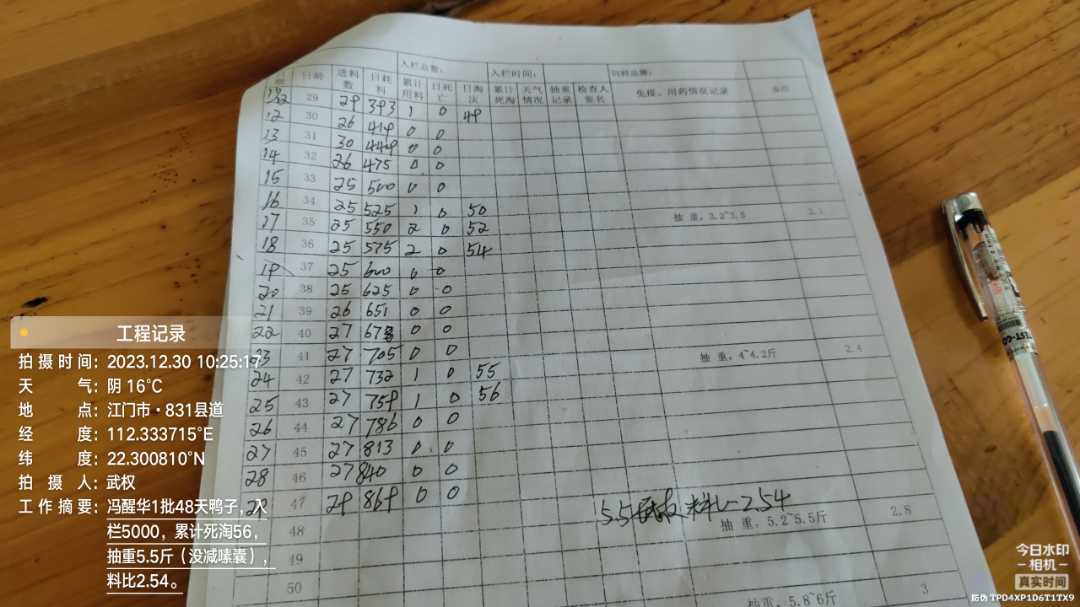 入栏总数： 入栏时间： 饲料品牌：
日龄 进料数 日耗料 累计用料 日死亡 日淘次 累计死淘 天气情况 抽重记录 检查人签名 免疫、用药情况记录
29 29 393 1 0 49
12 30 26 419 0 0
13 31 30 449 0 0
14 32 26 475 0 0
15 33 25 500 0 0
16 34 25 525 1 0 50
17 35 25 550 2 0 52 抽重：3.2~3.5 2.1
18 36 25 575 2 0 54
19 37 25 600 0 0
20 38 25 625 0 0
21 39 26 651 0 0
22 40 27 678 0 0
23 41 27 705 0 0 抽重：4~4.2斤 2.4
24 42 27 732 1 0 55
25 43 27 759 1 0 56
26 44 27 786 0 0
27 45 27 813 0 0
28 46 27 840 0 0
29 47 29 869 0 0
5.5 料比 2.54
48 抽重：5.2~5.5斤 2.8
49
50 抽重：5.8~6斤 3
工程记录
拍摄时间：2023.12.30 10:25:17
天气：阴 16℃
地点：江门市·831县道
经度：112.333715°E
纬度：22.300810°N
拍摄人：武权
工作摘要：冯醒华1批48天鸭子，入
栏5000，累计死淘56，
抽重5.5斤（没减嗉囊），
料比2.54。
今日水印
相机
真实时间
防伪 TPD4XP1D6T1TX9